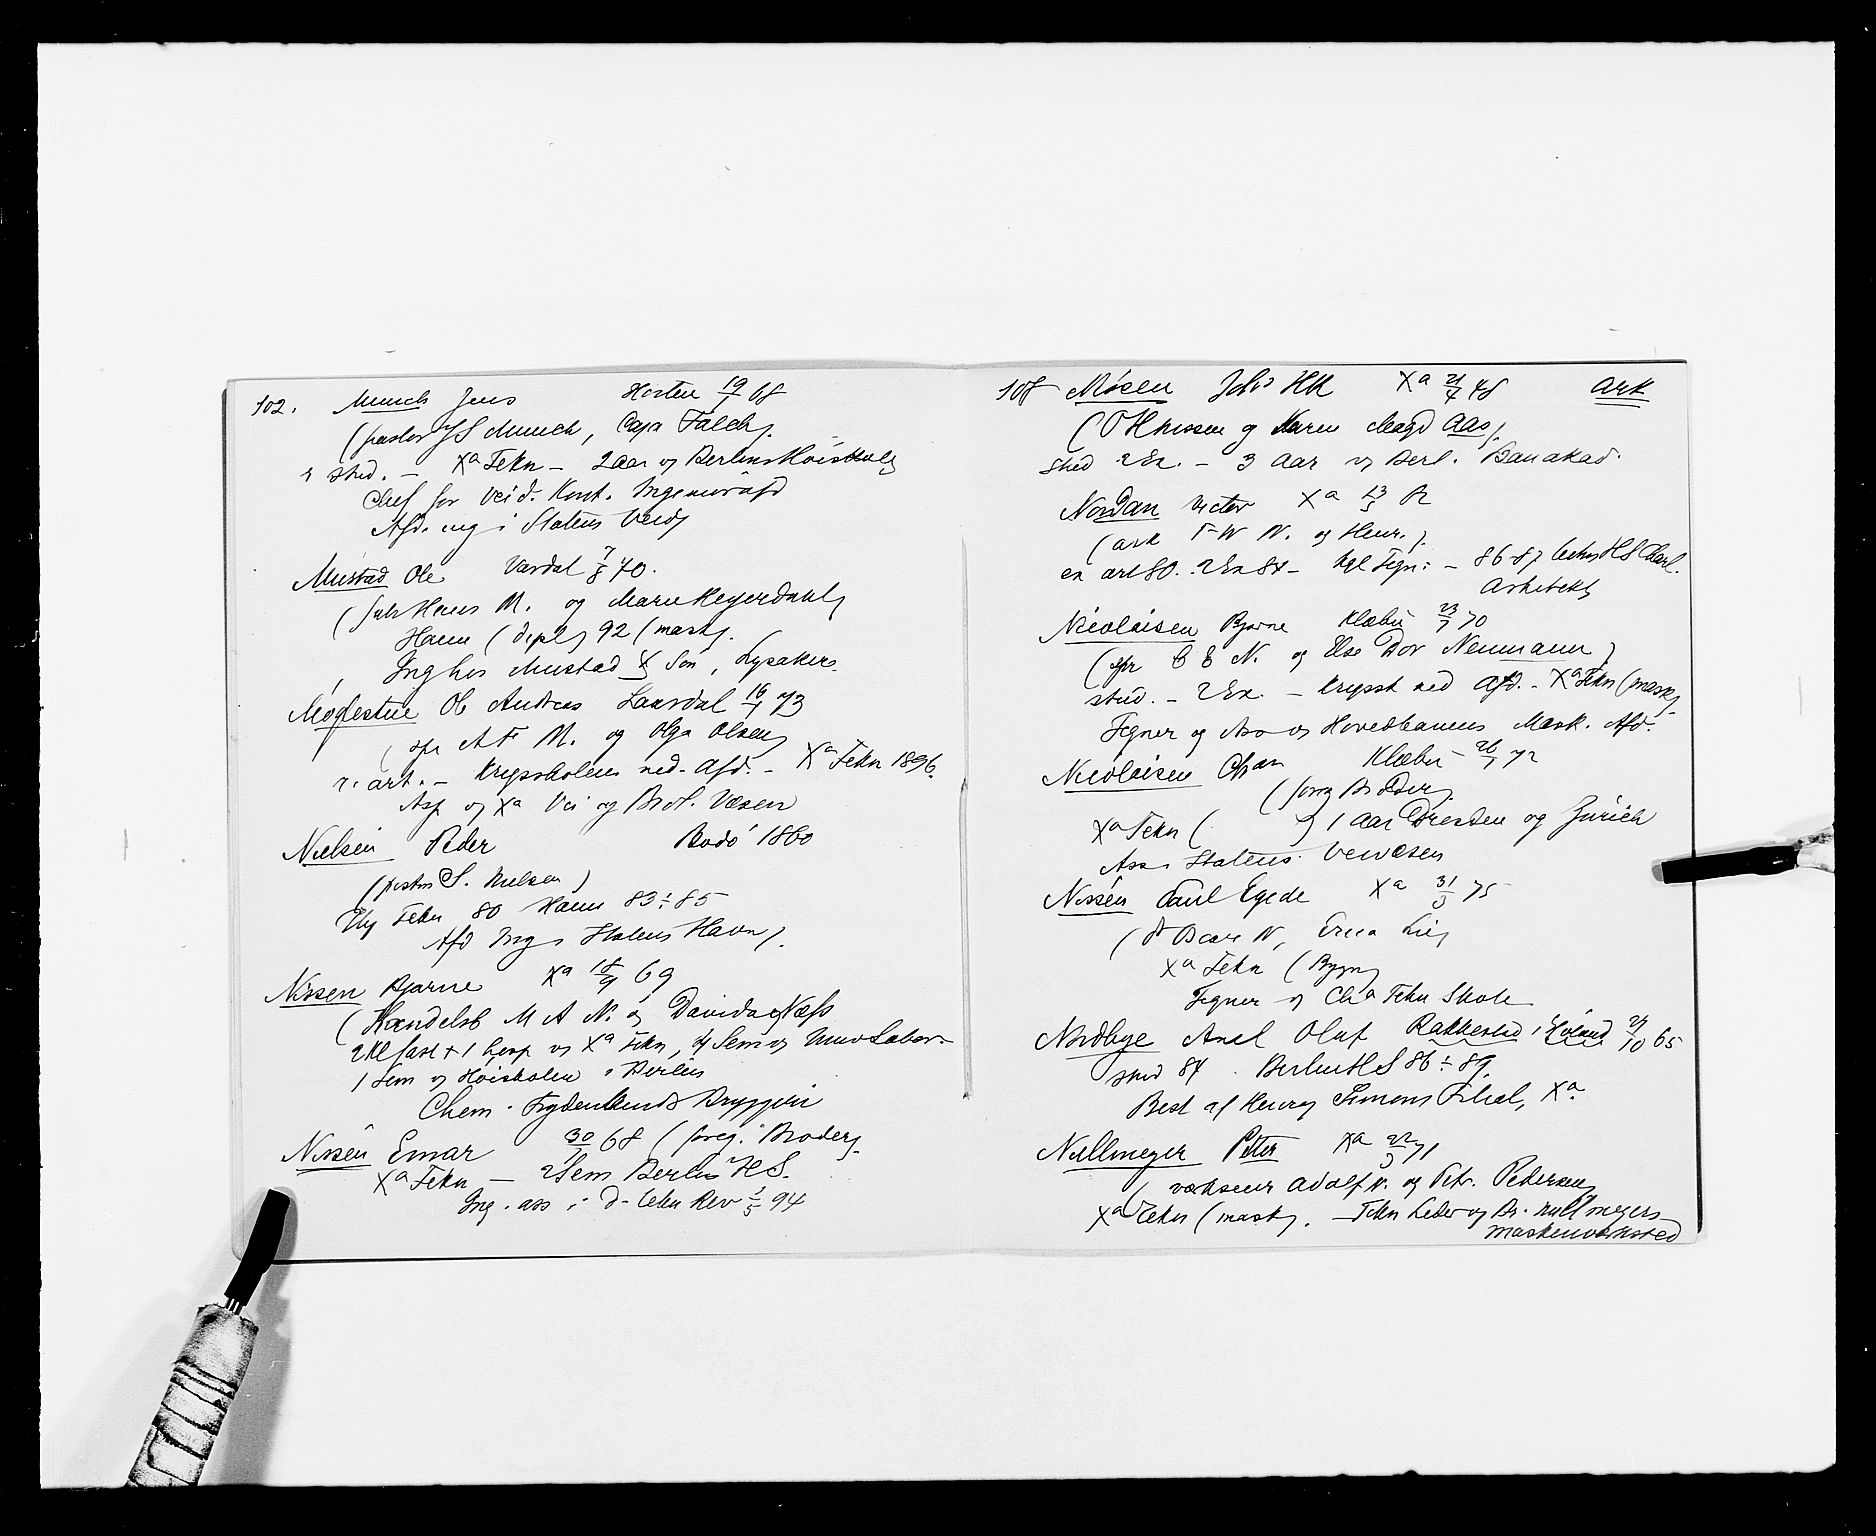 102. Munch Jens Horten 19/1 68
(pastor J S Munch, Caja Falch).
r stud. — Xa Tekn — 2 Aar v Berlins Høiskole
Chef for Veid. Kont. Ingeniørafd
Afd. ing i Statens Veiv
Mustad Ole Vardal 7/8 70.
(fabr Hans M. og Marie Heyerdahl)
Hann (dipl) 92 (mask).
Ing hos Mustad & Søn, Lysaker.
Møglestue Ole Andreas Laurdal 16/1 73
(spr A F M. og Olga Olsen)
r. art. — Krigsskolens ned. Afd. — Xa Tekn 1896.
Asp v Xa Vei og Brol. Væsen
Nielsen Peder Bodø 1860
(pastor S. Nielsen)
Thj Tekn 80 Hann 83÷85
Afd Ing i Statens Havnv.
Nissen Bjarne Xa 18/9 69
(Handelsb M A N. og Davida Næss
2 Kl fast + 1 hosp v Xa Tekn, 4 Sem v Univ Labor.
1 Sem v Høiskolen i Berlin
Chem. Frydenlunds Bryggeri
Nissen Einar 30/1 68 (foreg. Broder).
Xa Tekn — 2 Sem Berlin H S.
Ing. ass i d. tekn Rev 1/5 94
108 Nissen Johs HH Xa 21/4 48 Ark
(O H Nissen og Karen Magd Aas).
stud 2 Ex. — 3 Aar v Berl. Bauakad.
Nordan Victor Xa 13/5 62
(ark F W N. og Henr. ).
ex art 80. 2 Ex 84 — Kgl Tegn: — 86-87 techn H S Charl.
Arkitekt
Nicolaisen Bjarne Klæbu 23/7 70
(spr C E N. og Else Dor Neumann)
stud. — 2 Ex. — Krigssk ned Afd. — Xa Tekn (mask)
Tegner og Ass v Hovedbanens Mask. Afd.
Nicolaisen Chran Klæbu 26/7 72
(foreg Broder)
Xa Tekn ( ) 1 Aar Dresden og Zürich
Ass i Statens Veivæsen
Nissen Paul Egede Xa 31/3 75
( Oscar N, Erica Lie)
Xa Tekn (Bygn)
Tegner v Cha Tekn Skole
Nordbye Axel Oluf Rakkestad, 27/10 65
stud 84. Berlin H S 86÷89.
Best af Henry Simons Filial, Xa
Nullmeyer Peter Xa 22/3 71
( Adolf N. og Petr. Pedersen)
Xa Tekn (mask). — Tekn Leder v Br. Nullmeyers
maskinværksted